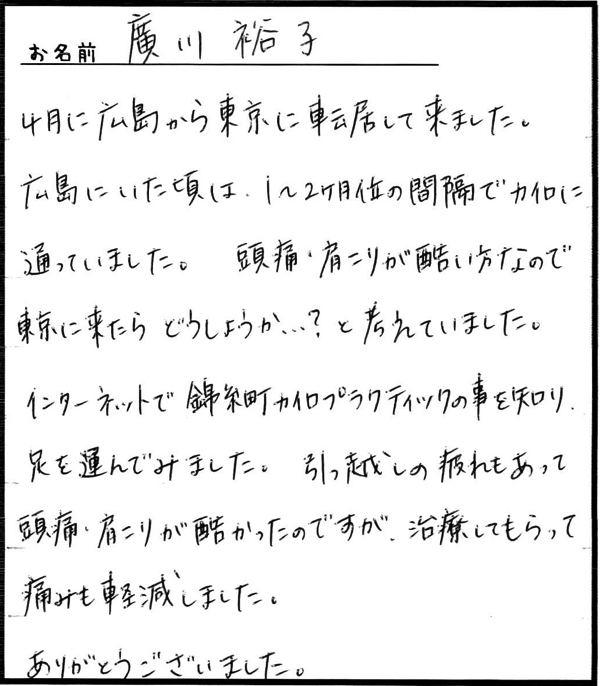 お名前 廣川 裕子
4月に広島から東京に転居して来ました。
広島にいた頃は、1〜2ヶ月位の間隔でカイロに
通っていました。 頭痛・肩こりが酷い方なので
東京に来たら どうしようか…?と考えていました。
インターネットで 錦糸町カイロプラクティックの事を知り、
足を運んでみました。 引っ越しの疲れもあって
頭痛・肩こりが酷かったのですが、治療してもらって
痛みも軽減しました。
ありがとうございました。